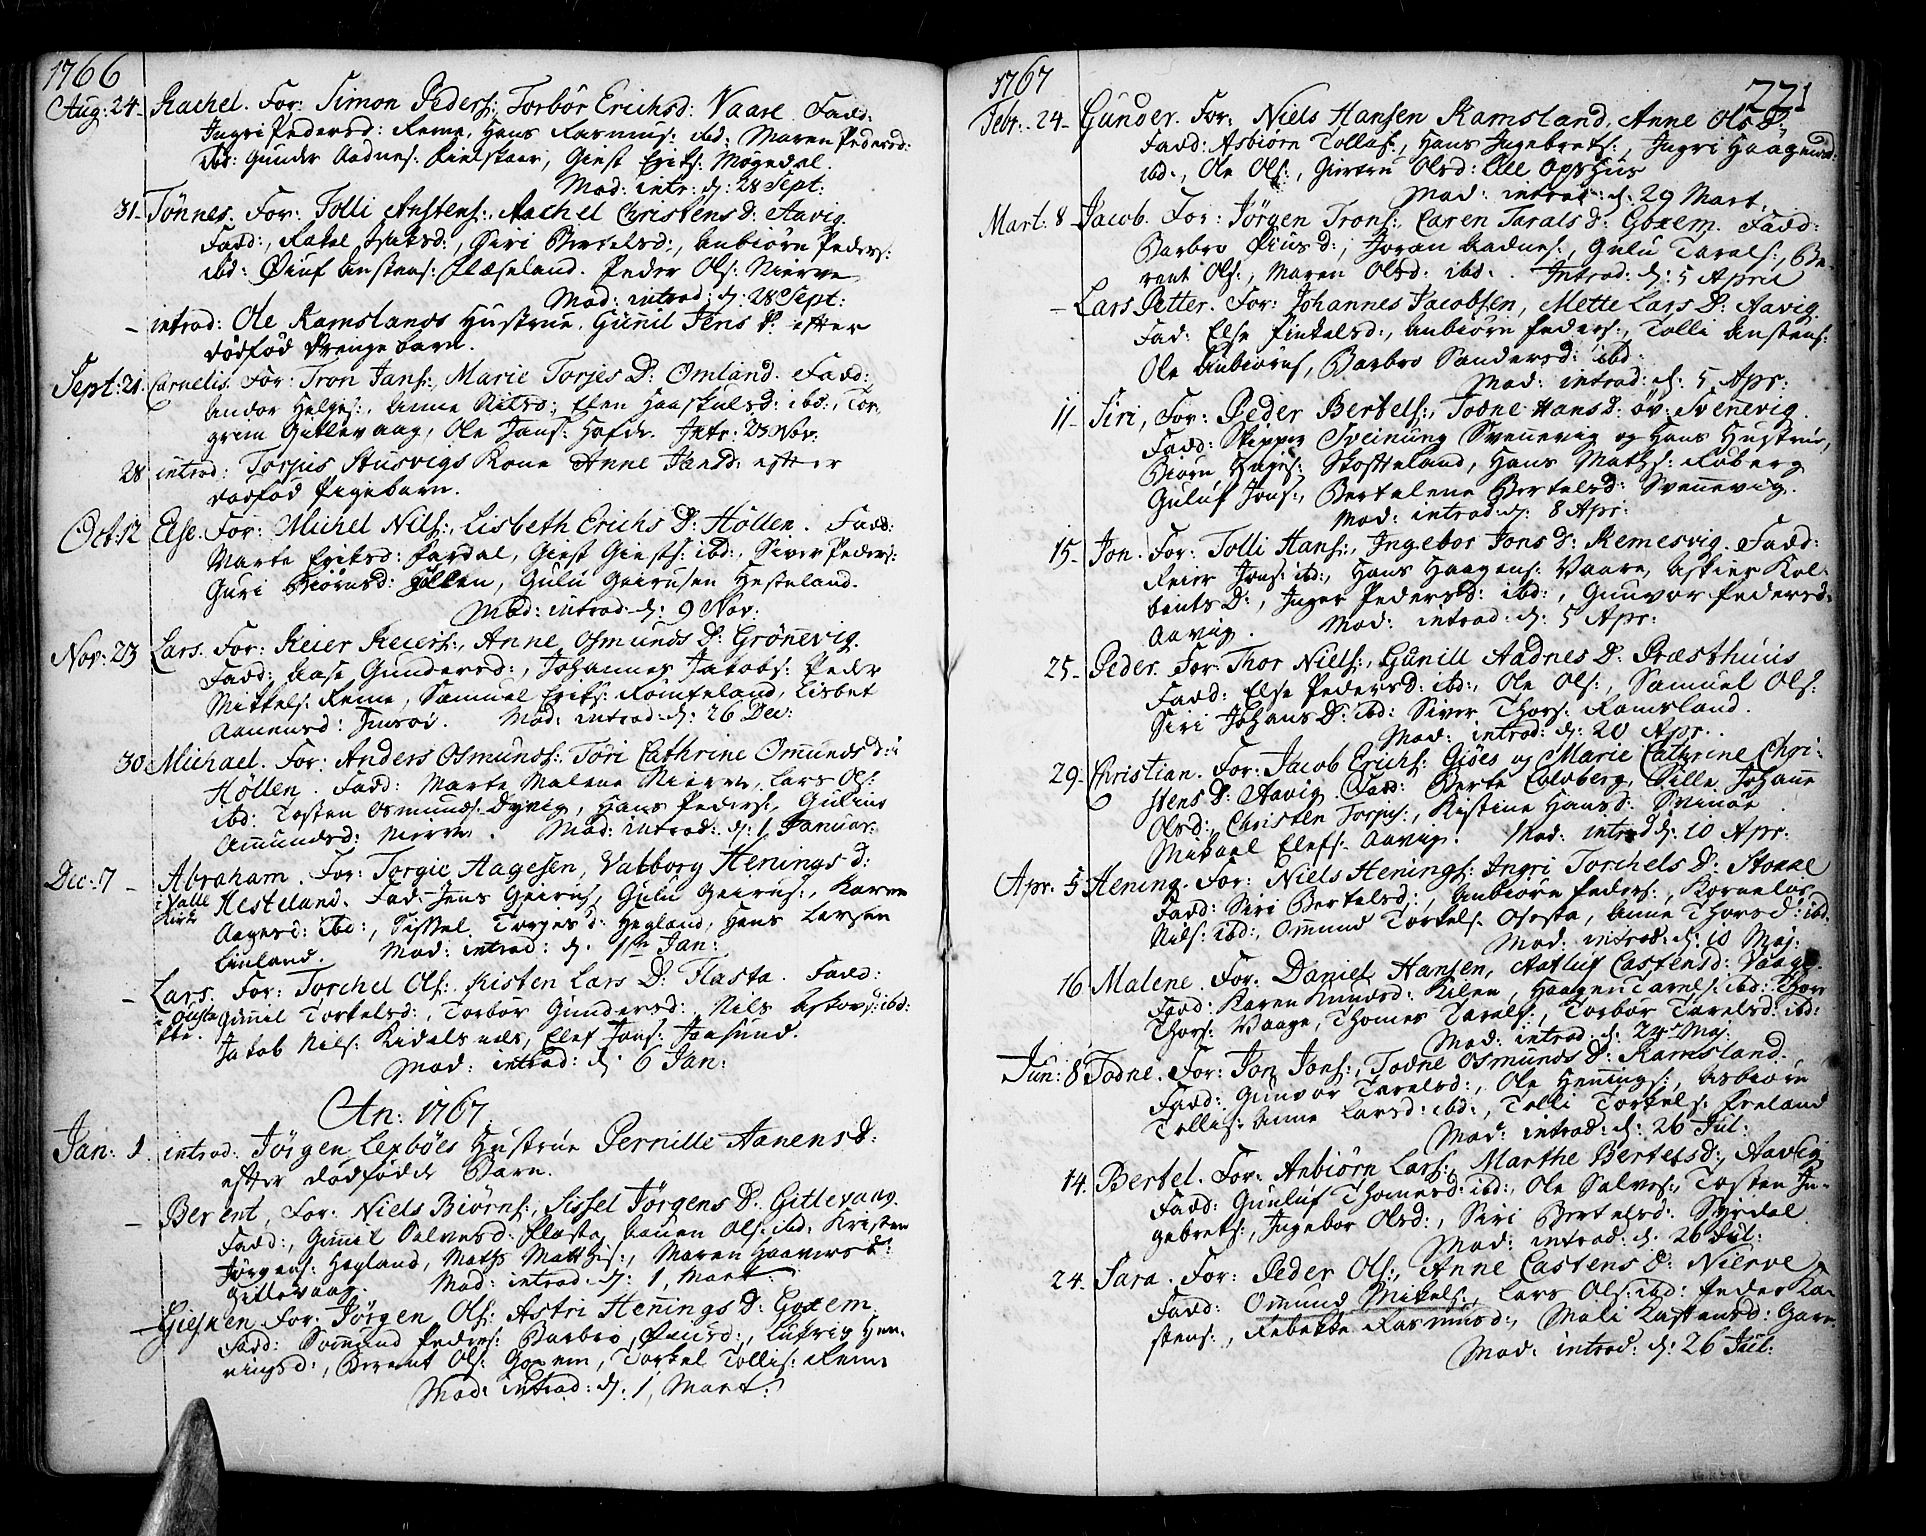 1766
Aug: 24 - Rachel. For: Simon Peders:, Torbor Erichsd: Vaare. Fadd:
Ingri Pedersd: Reme, Hans Rasmus: ibd: Maren Pedersd:
ibd: Gunder Aadnes: Kielskaar, Giest Eriks: Møgedal.
Mod: intr: d: 28 Sept:
31 - Tönnes. For: Tolli Anstens:, Rachel Christens D: Aavig.
Fadd:, Rakel Isaksd:, Siri Bertelsd:, Anbiørn Peders:
ibd: Anstens: Flæseland. Peder Ols: Nierve
Mod: introd: d: 28 Sept:
- introd: Ole Ramslands Hustrue, Gunil Jens D: efter
dödföd Drengebarn.
Sept: 21. Cornelis. For: Tron Jans:, Marie Torjes D: Omland. Fadd:
Andor Helges:, Anne Nilsd:, Elen Haaskulsd: ibd:, Tor-
grim Gitlevaag, Ole Jans: Hafdr. Intr: 23 Nov:
28 introd: Torjus Stusvigs Kone Anne Jansd: efter
dødfød Pigebarn.
Oct: 12 Else. For: Michel Nils:, Lisbeth Erichs D: Höllen. Fadd:
Marte Eriksd: Fardal, Giest Giests: ibd:, Siver Peders:
Guri Biørnsd: Höllen, Gulu Geirusen Hesteland.
Mod: introd: d: 9 Nov.
Nov: 23 Lars. For: Reier Reiers:, Anne Osmunds D: Grönnevig.
Fadd: Aase Gundersd:, Johannes Jacobs: Peder
Mikkels: Reme, Samuel Eriks: Romseland, Lisbet
Aanensd: Imsöi. Mod: introd: d: 26 Dec:
30 Michael. For: Anders Osmunds:, Tori Cathrine Omunds d: i
Höllen. Fadd: Marte Malene Nierve, Lars Ols:
ibd: Tosten Osmunds: Dyvig, Hans Peders:, Guline
Amundsd: Nierve. Mod: introd: d: 1 Januar:
Dec: 7 - Abraham. For: Torgie Aagesen, Valborg Henings D:
i Valle
Kirke
Hesteland. Fad: Jens Geirus:, Gulu Geirus:, Karen
Aagesd: ibd:, Sissel Torgesd: Hegland, Hans Larsen
Linland. Mod: introd: d: 1ste Jan:
- Lars. For: Torchel Ols: Kisten Lars D: Flasta. Fadd:
Gunnil Torkelsd:, Torbor Gundersd:, Nils Askovs: ibd:
Jakob Nils: Kidelsnæs, Elef Jons: Jaasund.
Mod: introd: d: 6 Jan:
An: 1767
Jan: 1. introd: Jørgen Lexböes Hustrue Pernille Aanens D:
efter dödföde Barn.
- Berent, For: Niels Biörns:, Sissel Jörgens D: Gitlevaag.
Fadd:, Gunil Salvesd: Flasta, Aanen Ols: ibd: Kristen
Jörgens: Hegland, Maths Matthis:, Maren Haaversd:
Gitlevaag. Mod: introd: d: 1, Mart:
- Giesken. For: Jörgen Ols: Astri Henings D: Goxem.
Fadd: Peders: Barbro Piusd:, Hen-
ningsd:, Berent Ols: Goxem, Torkel Tollis: Reme
Mod: introd: d: 1, Mart:
1767
221
Febr: 24 - Gunder. For: Niels Hansen Ramsland, Anne Ols D:
Fadd: Asbiörn Tollas:, Hans Ingebrets:, Ingri Haagensd:
ibd:, Ole Ols:, Giertru Olsd: Elle Opshus
Mod: introd: d: 29 Mart.
Mart: 8 - Jacob. For: Jörgen Trons:, Caren Tarals D: Goxem. Fadd:
Barbro Piusd:, Joran Aadnes:, Gulu Tarals:, Be-
rent Ols:, Maren Olsd: ibd:. Introd: d: 5 April
- Lars Petter. For: Johannes Jacobsen, Mette Lars D: Aavig.
Fad: Else Finkelsd:, Anbiörn Peders:, Tolli Anstens:
Ole Anbiörns, Barbro Sandersd: ibd:
Mod: introd: d: 5 Apr:
11 - Siri, For: Peder Bertels:, Todne Hans D: öv: Svennevig.
Fadd: Skipper Sveinung Svennevig og Hans Hustrue,
Biörn Skofteland, Hans Maths: Röberg
Guluf Jons:, Bertelene Bertelsd: Svennevig.
Mod: introd: d: 8 Apr:
15 - Jon. For: Tolli Hans:, Ingebor Jons D: Remesvig. Fadd:
Reier Jons: ibd:, Hans Haagens: Vaare, Askier Kol-
bents D:, Inger Pedersd: ibd:, Gunvor Pedersd:
Aavig. Mod: introd: d: 5 Apr:
25 - Peder. For: Thor Niels:, Gunill Aadnes D: Præsthuus
Fadd: Else Pedersd: ibd:, Ole Ols:, Samuel Ols:
Siri Johans D: ibd: Siver Thors: Ramsland.
Mod: introd: d: 20 Apr.
29 - Christian. For: Jacob Erichs: Giöes og Marie Cathrine Chri-
stens D: Aavig. Fadd: Berte Coldberg, Sille Johanne
Olsd:, Christen Torjus:, Kistine Hansd: Svinöe
Mikael Elefs: Aavig. Mod: introd: d: 10 Apr:
Apr. 5 Hening. For: Niels Henings: Ingri Torchels D: Stokke
Fadd: Siri Bertelsd:, Anbiörn Peders:, Kornelus
Nils: ibd:, Omund Torkels: Ofesta, Anne Thorsd: ibd:
Mod: introd: d: 10 Maj:
16 Malene. For: Daniel Hansen, Castensd: Vaage
Fadd: Karen Knudsd: Kilen, Haagen Tarals: ibd: Thor
Thors: Vaage, Thomes Tarals:, Torbor Taralsd: ibd:
Mod: introd: d: 24 Maj:
Jun: 8 Todne. For: Jon Jons:, Todne Osmunds D: Ramsland.
Fadd: Gunvor Taralsd:, Ole Henings:, Asbiörn
Tollis: Anne Larsd: ibd:, Tolli Torkels: Freland
Mod: introd: d: 26 Jul:
14. Bertel. For: Anbiörn Lars:, Marthe Bertelsd:, Aavig
Fadd: Gunluf Thomesd: ibd:, Ole Salves:, Tosten In-
gebrets:, Ingebor Olsd:, Siri Bertelsd: Syrdal
Mod: introd: d: 26 Jul:
24. Sara. For: Peder Ols:, Anne Castens D: Nierve
Fadd: Omund Mikels:, Lars Ols: ibd: Peder Ka-
stens:, Rebekke Rasmusd:, Mali Kastensd: Gare
Mod: introd: d: 26 Jul: